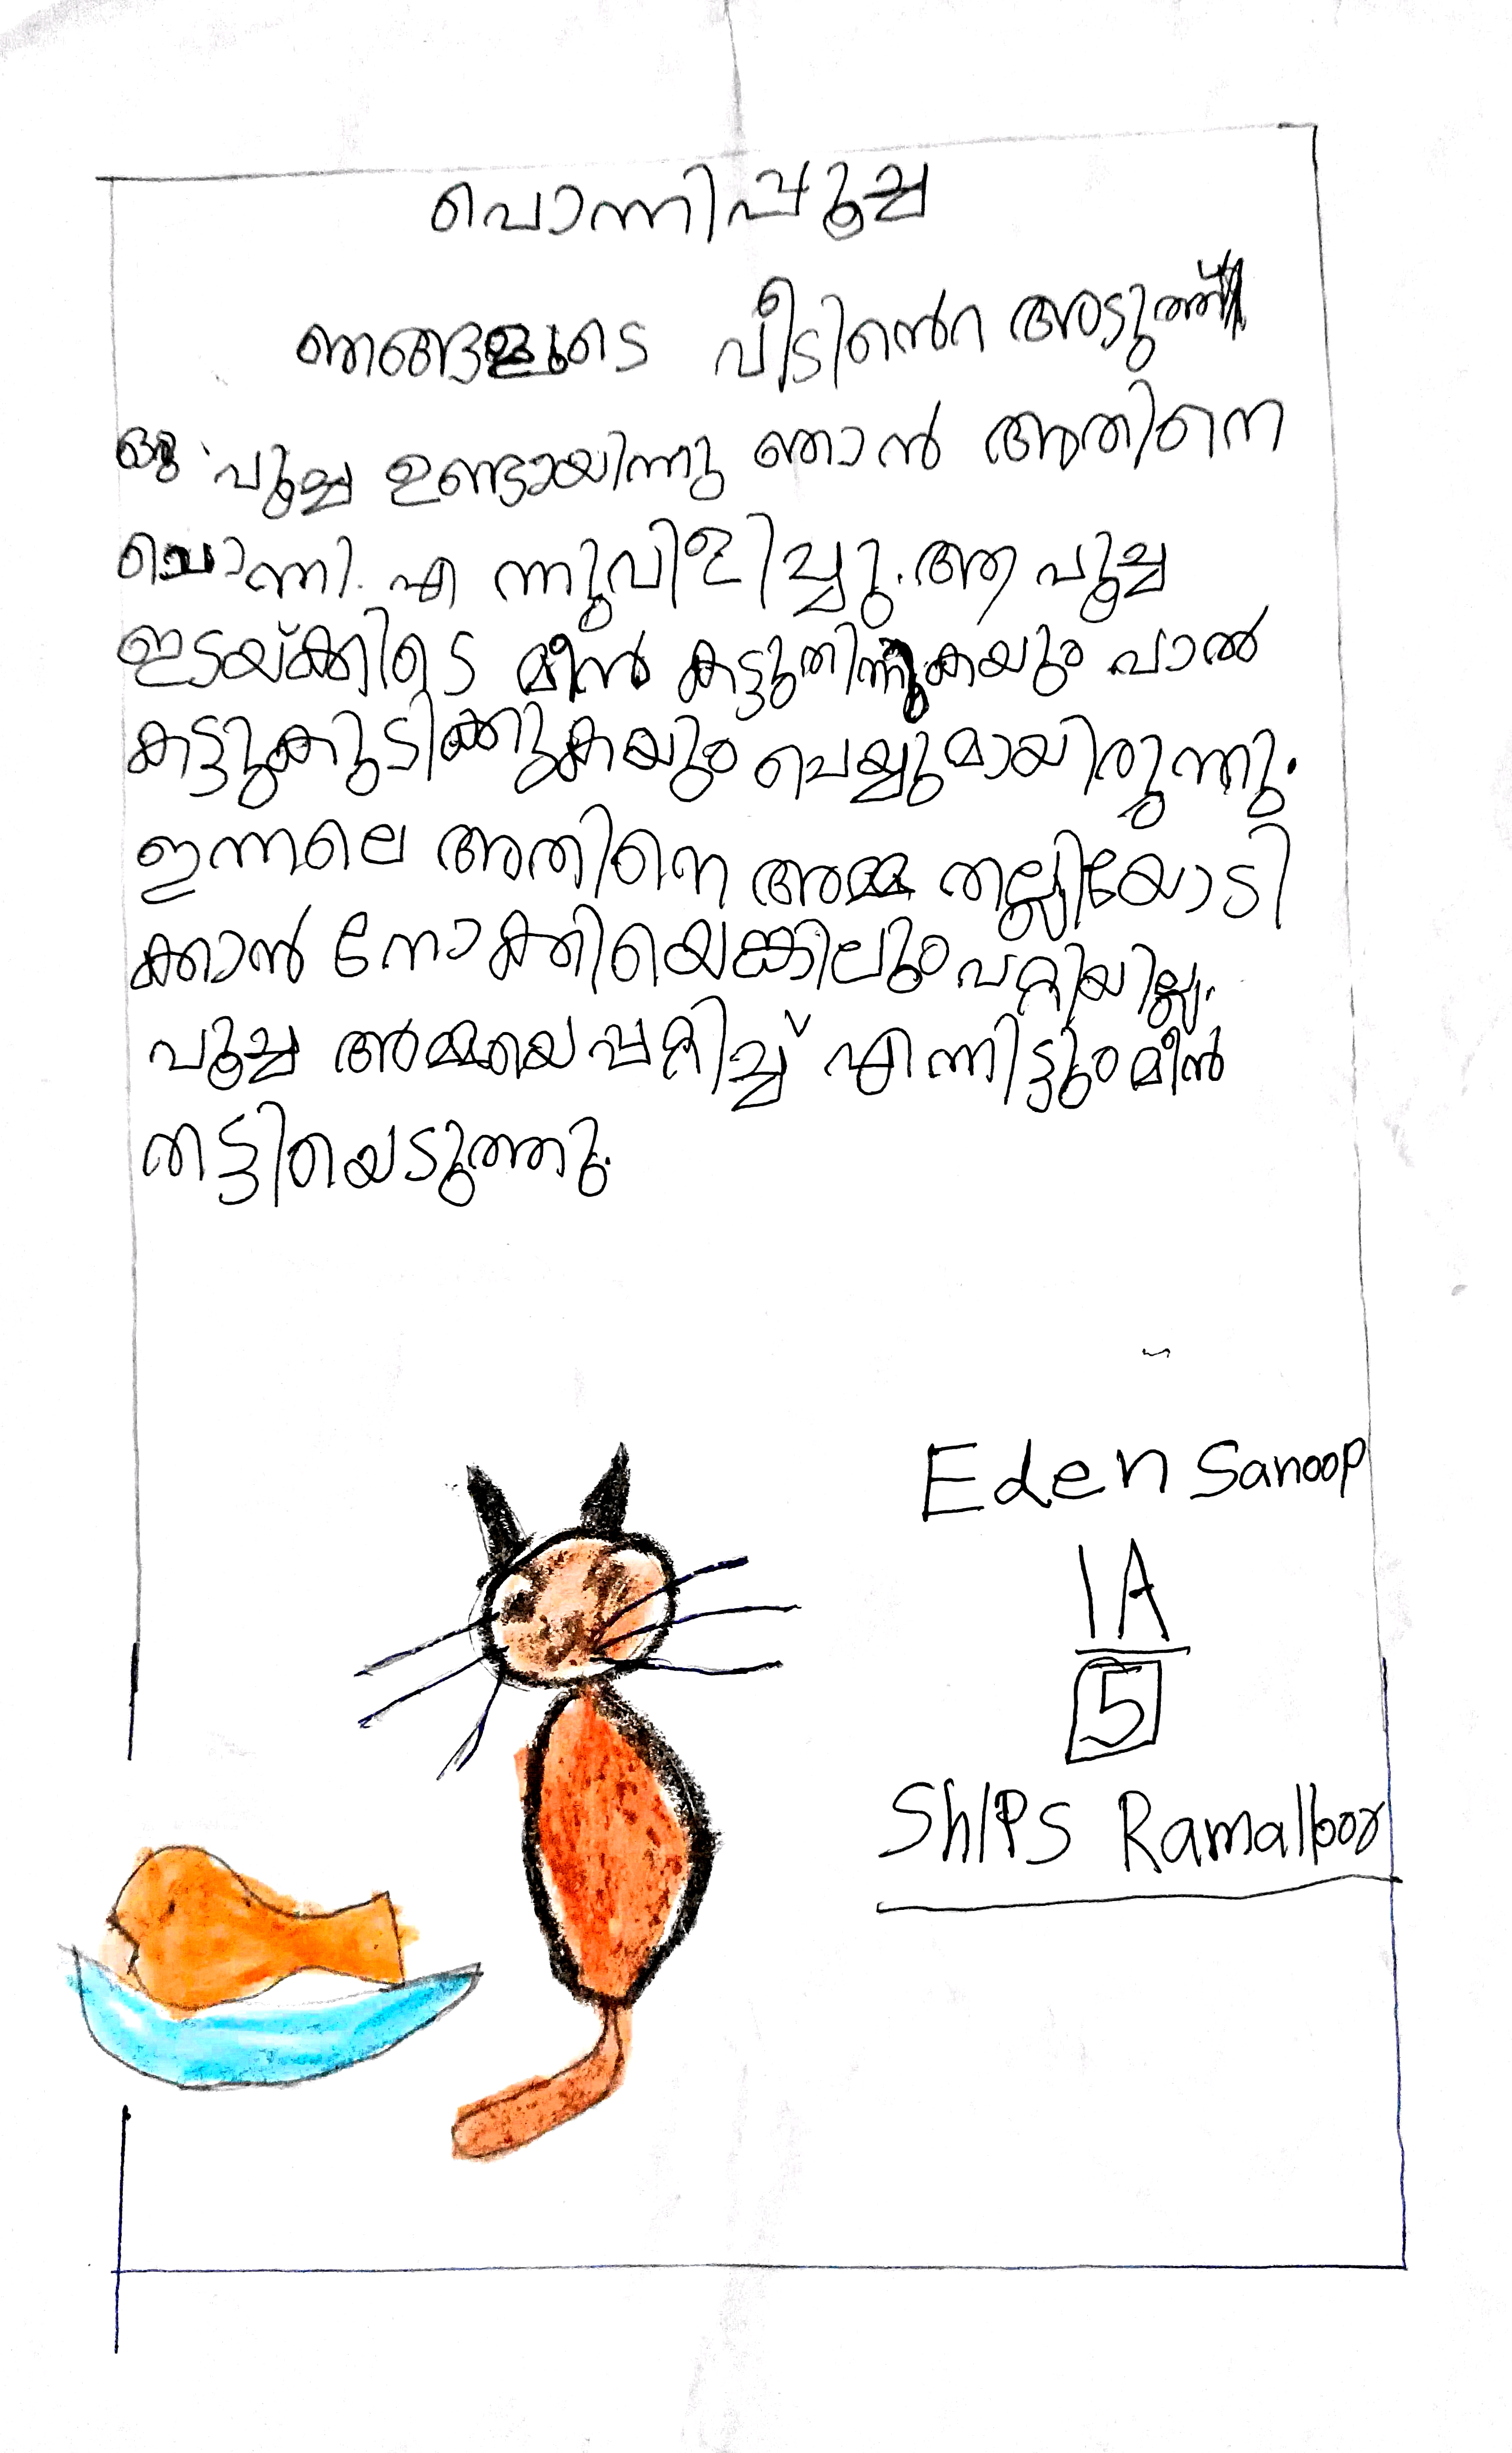 പൊന്നിപ്പൂച്ച
ഞങ്ങളുടെ വീടിൻെറ അടുത്ത്
ഒരു പൂച്ച ഉണ്ടായിന്നു ഞാൻ അതിനെ
പൊന്നി എന്നുവിളിച്ചു. ആ പൂച്ച
ഇടയ്ക്കിടെ മീൻ കട്ടുതിന്നുകയും പാൽ
കട്ടുകുടിക്കുകയും ചെയ്യുമായിരുന്നു.
ഇന്നലെ അതിനെ അമ്മ തല്ലിയോടി
ക്കാൻ നോക്കിയെങ്കിലും പറ്റിയില്ല.
പൂച്ച അമ്മയെപ്പറ്റിച്ച് എന്നിട്ടും മീൻ
തട്ടിയെടുത്തു.
Eden Sanoop
1A
5
ShIPS